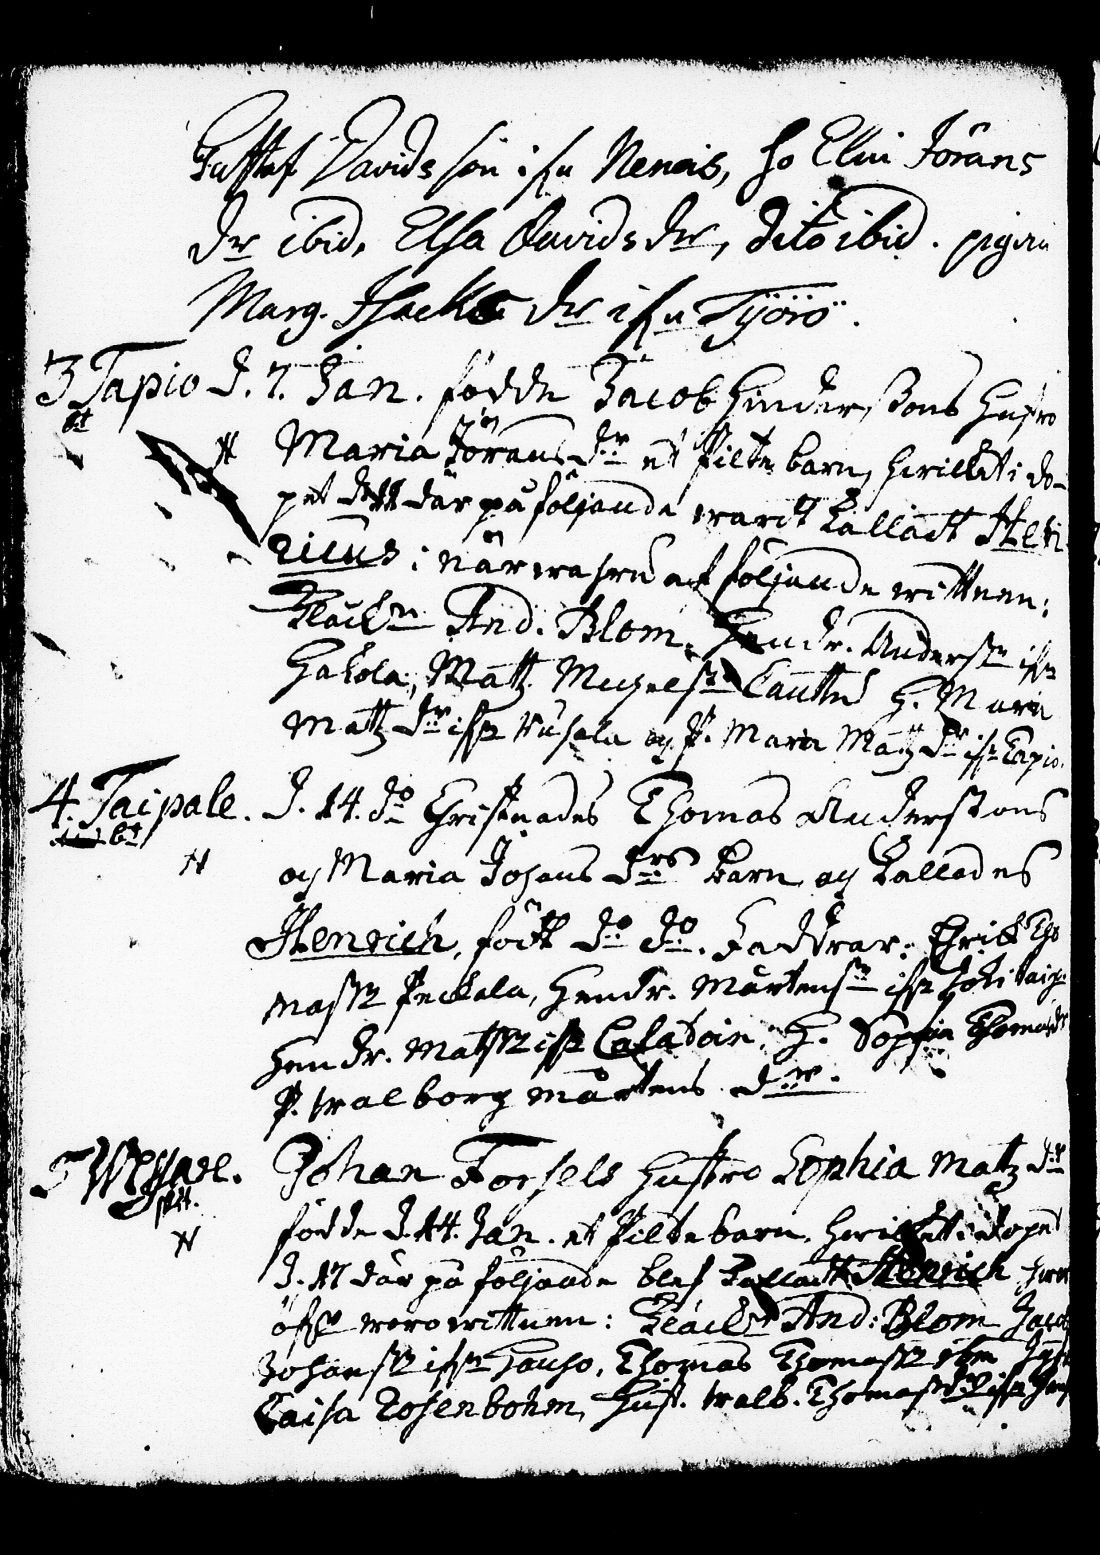 Gustaf Davids son ifrn Neneis, ho Elin Jörans
dr ibid, Elsa Davids dr, dito ibid. pigan
Marg. Isacks dr ifrn Työrö.
3 Tapio d. 7. Jan. födde Jacob Hinderssons hustro
bt N Maria Jörans dr et Pilte barn, hvilket i do-
pet d. 11 där på följande warit kalladt Hen
ricus; närwahrnd af följande wittnen:
Klåckrn And. Blom, Hendr. Anderssn ifrn
Hakola, Matz Michelsn H. Maria
Matz dr ifrn och P. Maria Matz dr ifrn Tapio.
4. Taipale. d. 14. do Christnades Thomas Anderssons
bt
N
och Maria Johans drs barn och kallades
Henrich, född do do. Faddrar: Erik Tho
massn Peckala, Hendr. Mårtensn ifrn
Hendr. Matssn ifrn H. Sophia Thomas dr
P. Walborg Mårtens dr.
5 Johan Forsels hustro Sophia Matz dr
N
födde d. 14. Jan. et Pilte barn, hvilket i dopet
d. 17 där på följande blef kalladt Henrich hwar
öfr woro wittnen: Klåckn And: Blom Jacob
Johanssn ifrn Thomas Thomassn
Caisa Rosenbohm, Hust. Walb. Thomas dr ifrn